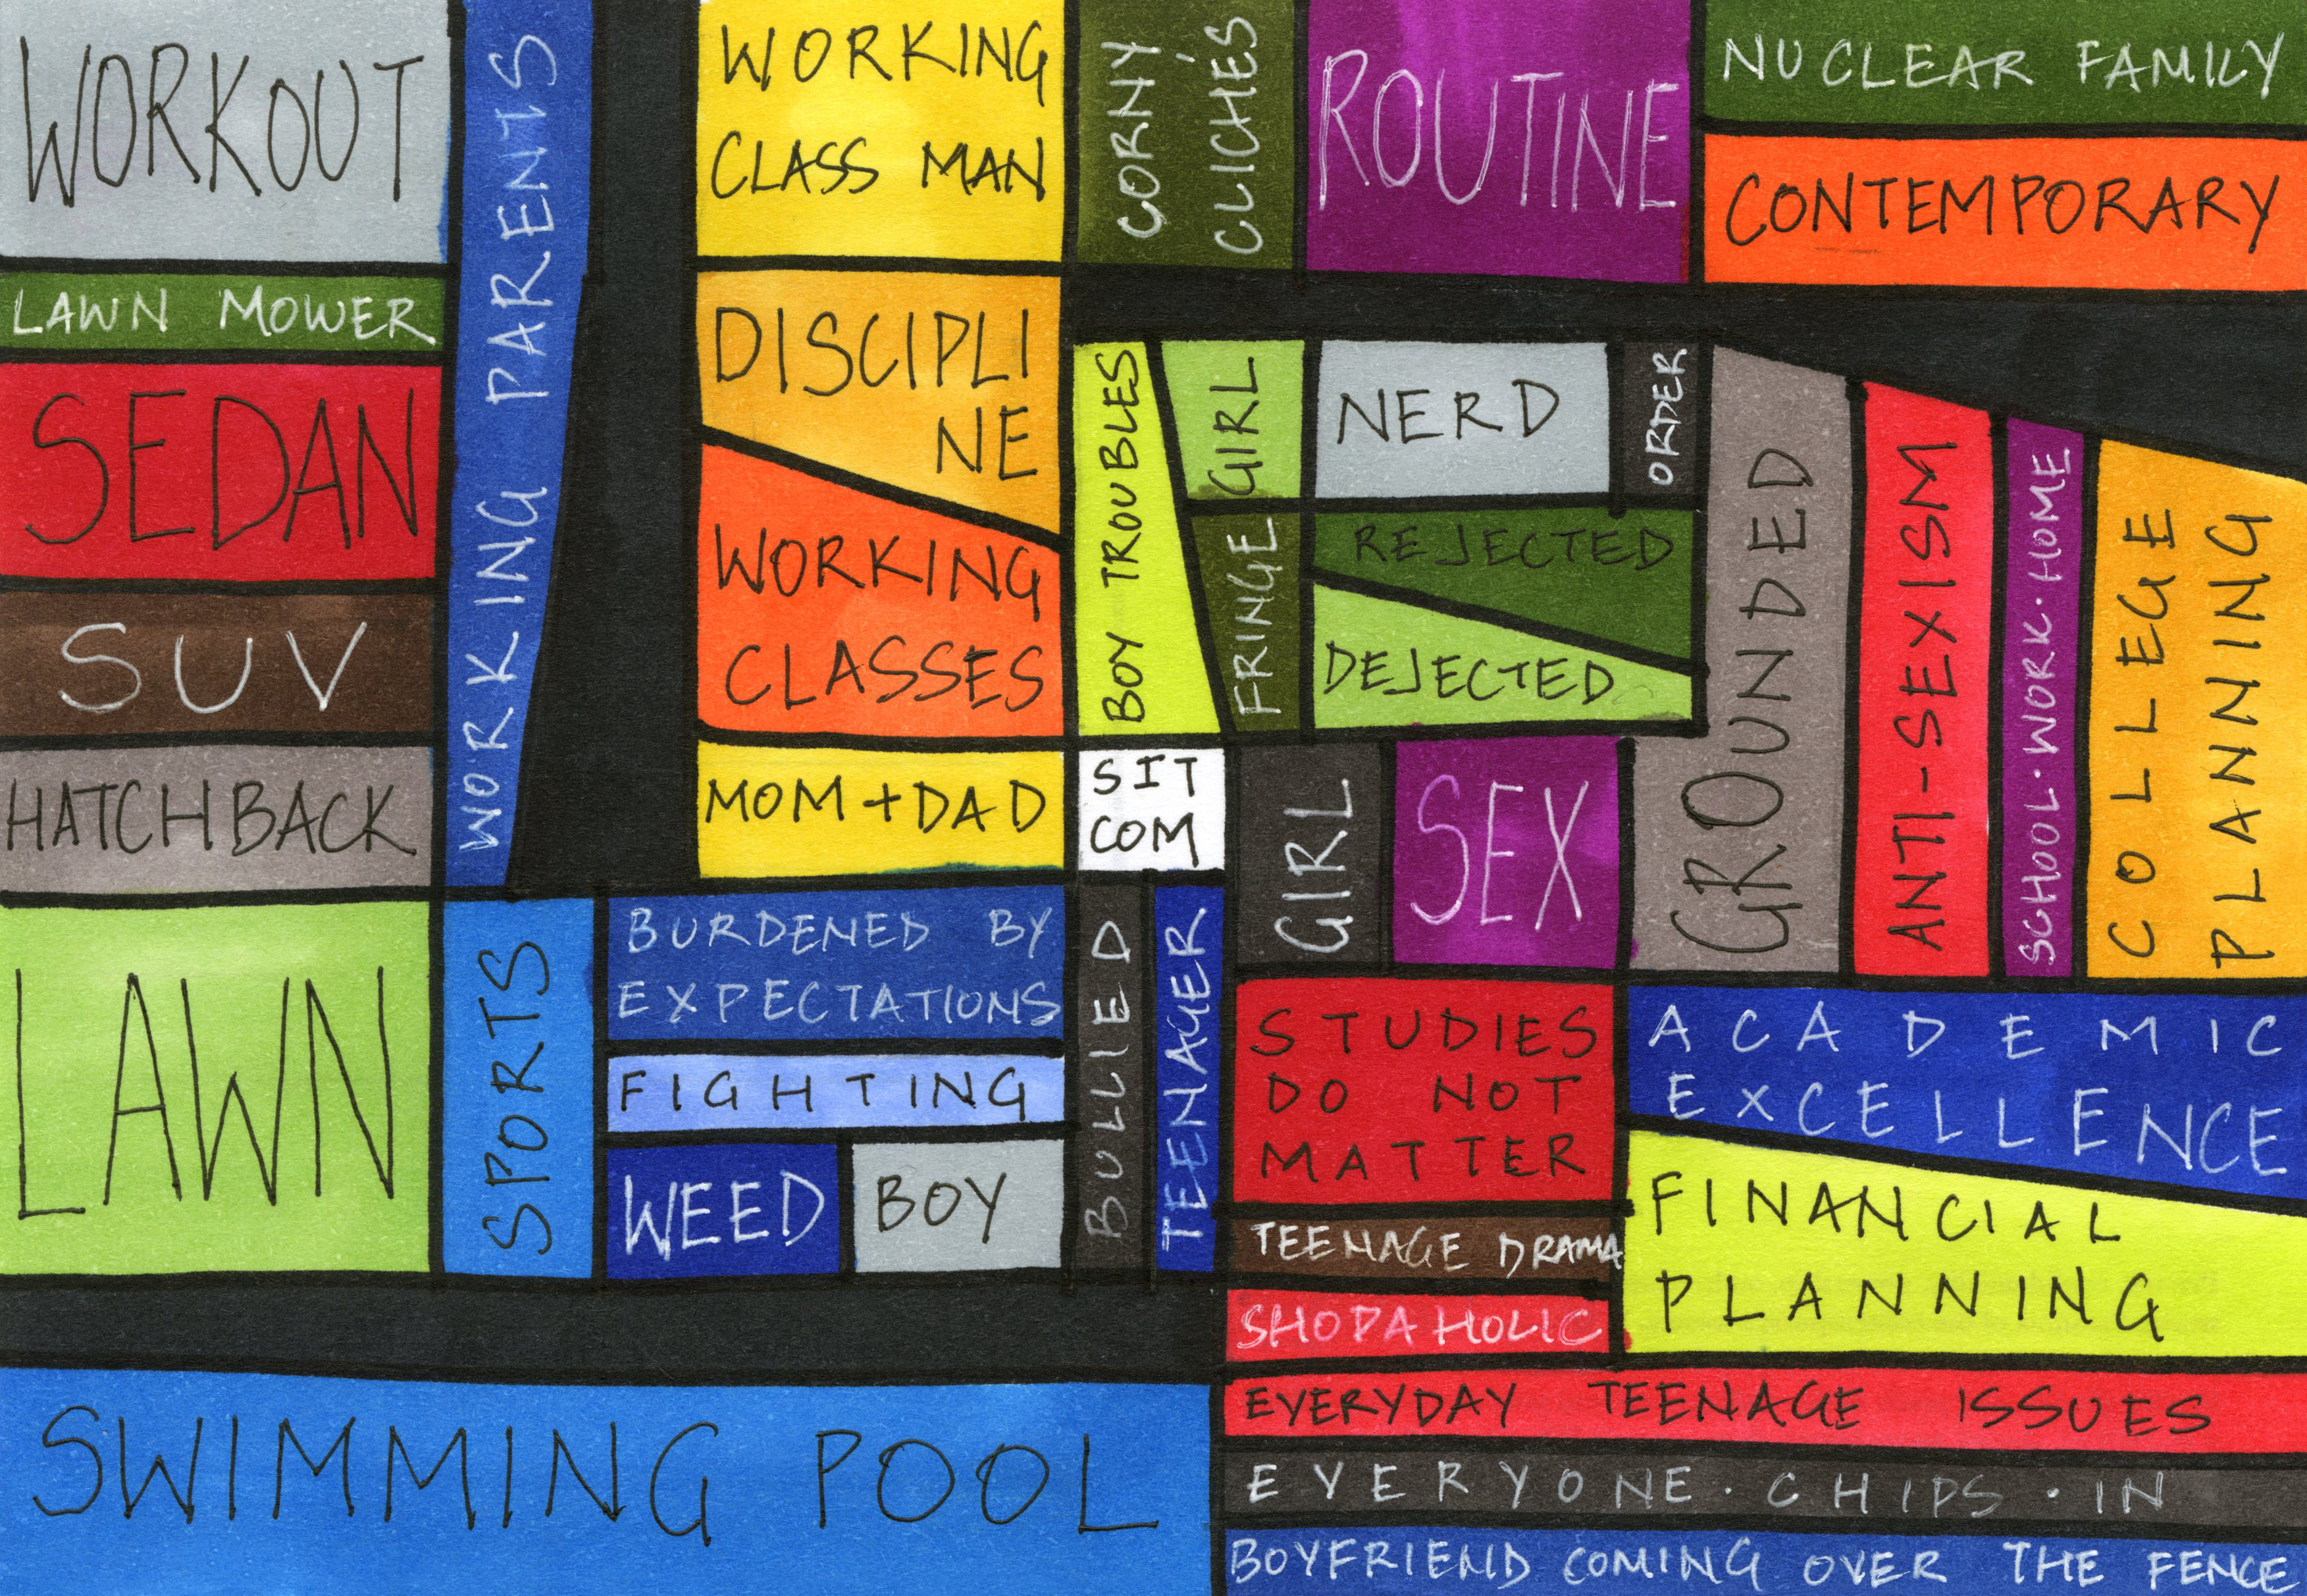 WORKOUT
WORKING PARENTS
WORKING
CLASS MAN
CORNY
CLICHÉS
ROUTINE
NUCLEAR FAMILY
CONTEMPORARY
LAWN MOWER
SEDAN
SUV
HATCHBACK
DISCIPLI
NE
WORKING
CLASSES
MOM + DAD
BOY TROUBLES
GIRL
FRINGE
NERD
ORDER
REJECTED
DEJECTED
GROUNDED
ANTI-SEXISM
SCHOOL·WORK·HOME
COLLEGE
PLANNING
SIT
COM
GIRL
SEX
LAWN
SPORTS
BURDENED BY
EXPECTATIONS
FIGHTING
WEED
BOY
BULLIED
TEENAGER
STUDIES
DO NOT
MATTER
TEENAGE DRAMA
SHOPAHOLIC
ACADEMIC
EXCELLENCE
FINANCIAL
PLANNING
SWIMMING POOL
EVERYDAY TEENAGE ISSUES
EVERYONE·CHIPS·IN
BOYFRIEND COMING OVER THE FENCE